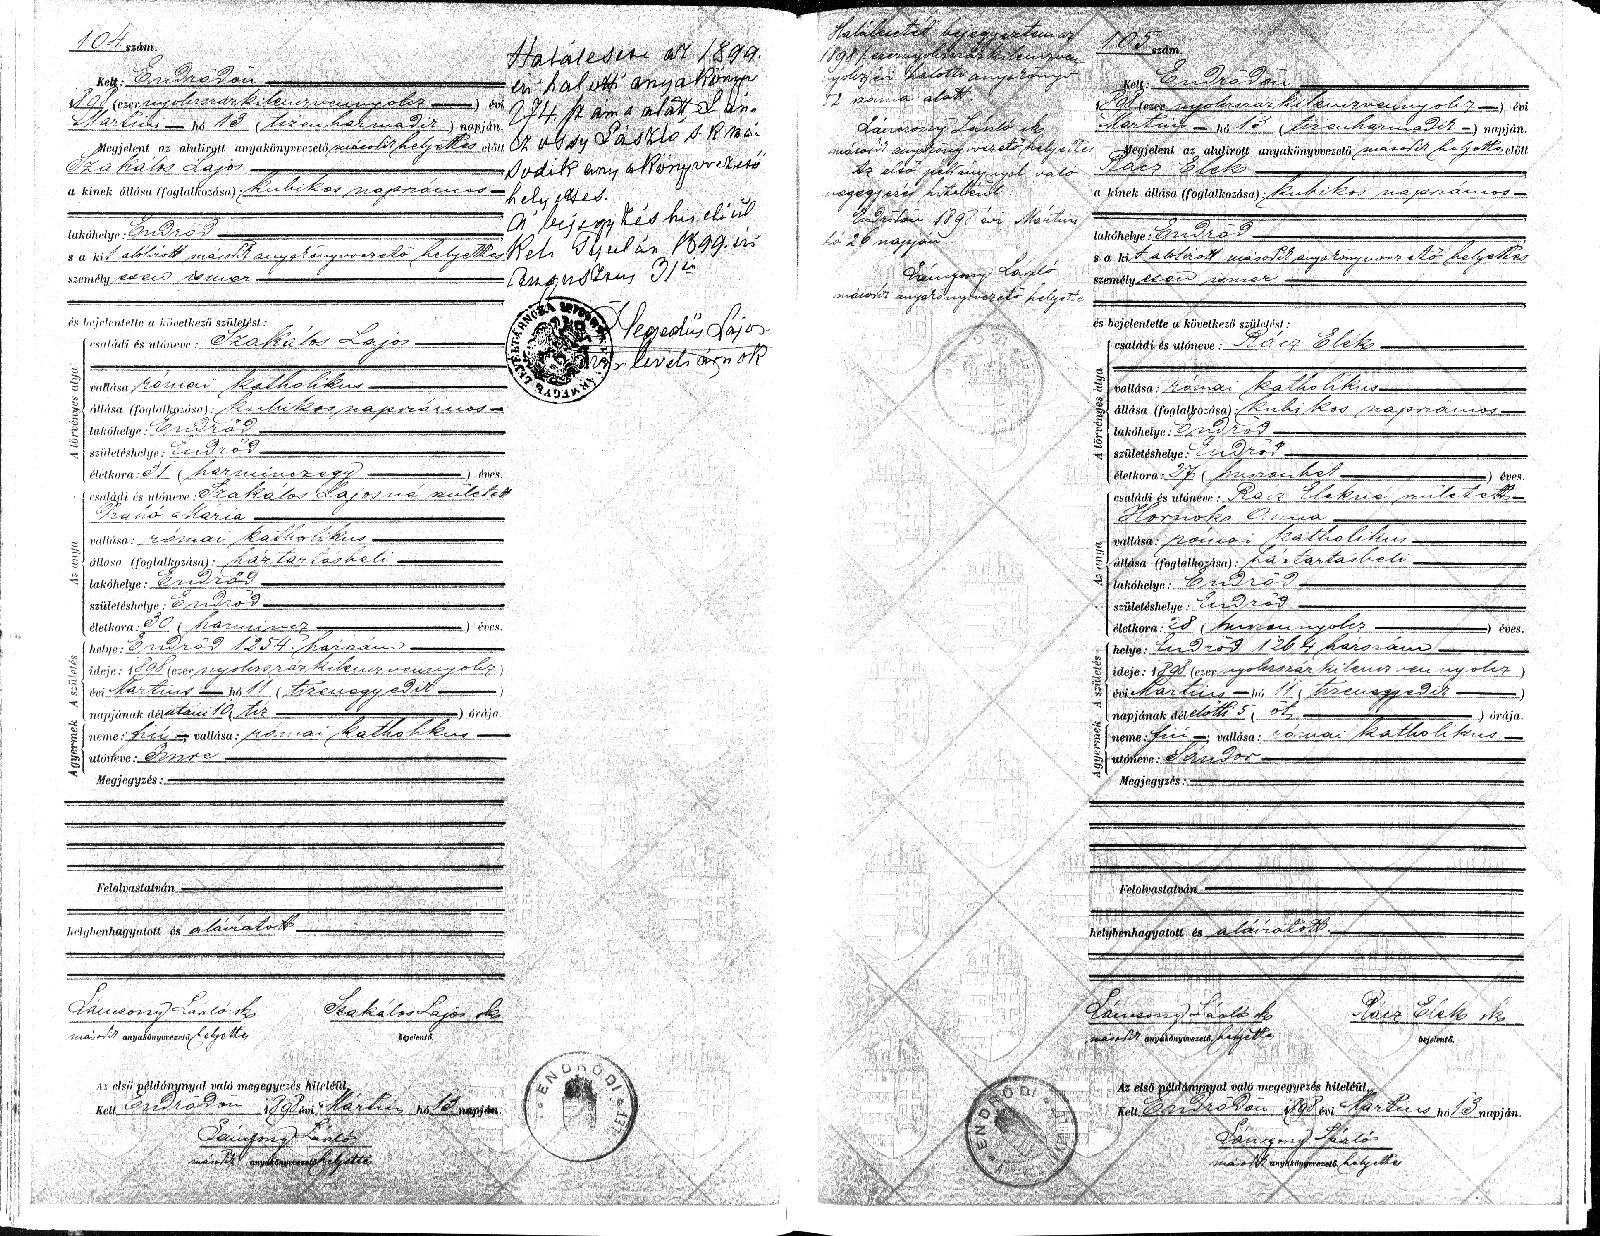 104 szám.
Kelt: Endrődön
1898 (ezer nyolczszázkilenczvennyolcz) évi
Mártius hó 13 (tizenharmadik) napján.
Megjelent az alulírott anyakönyvvezető másodikhelyettes előtt
Szakálos Lajos
a kinek állása (foglalkozása): kubikos napszámos
lakóhelye: Endrőd
s a kit alólírott másodk anyakönyvvezető helyettes
személyesen ismer
és bejelentette a következő születést:
A törvényes atya
családi és utóneve: Szakálos Lajos
vallása római katholikus
állása (foglalkozása): kubikos napszámos
lakóhelye: Endrőd
születéshelye: Endrőd
életkora: 31 (harminczegy) éves.
Az anya
családi és utóneve: Szakálos Lajosné született
Mária
vallása: római katholikus
állása (foglalkozása): háztartásbeli
lakóhelye: Endrőd
születéshelye: Endrőd
életkora: 30 (harmincz) éves.
A születés
helye: Endrőd 1254. házszám
ideje: 1898 (ezer nyolczszázkilenczvennyolcz)
évi Mártius hó 11 (tizenegyedik)
napjának délutáni 10 (tíz) órája.
A gyermek
neme: fiú; vallása: római katholikus
utóneve: Imre
Megjegyzés:
Felolvastatván
helybenhagyatott és aláiratott
Láncsony László sk
másodk anyakönyvvezető helyettes
Szakálos Lajos sk
bejelentő.
Az első példánynyal való megegyezés hiteléül.
Kelt Endrődön 1898 évi Mártius hó 13 napján.
Láncsony László
másodk anyakönyvvezető helyettes
ENDRŐDI
Halálesete az 1899.
évi halotti anyakönyv
274 száma alatt. Lán-
László s. k. má-
sodik anyakönyvvezető
helyettes.
A bejegyzés hiteléül
Kelt Gyulán 1899. évi
Augusztus 31én
Hegedüs Lajos
levéltárnok
Halálesetét bejegyeztem az
1898 (ezernyolczszázkilenczven
nyolcz) évi halotti anyakönyv
52 száma alatt.
Láncsony László sk
másodk anyakönyvvezető helyettes
Az első példánynyal való
megegyezés hiteléül
Endrődön 1898 évi Mártius
hó 20 napján
Láncsony László
másodk anyakönyvvezető helyettes
105 szám.
Kelt: Endrődön
1898 (ezer nyolczszázkilenczvennyolcz) évi
Mártius hó 13 (tizenharmadik) napján.
Megjelent az alulírott anyakönyvvezető másodk helyettes előtt
Rácz Elek
a kinek állása (foglalkozása): kubikos napszámos
lakóhelye: Endrőd
s a kit alólírott másodk anyakönyvvezető helyettes
személyesen ismer
és bejelentette a következő születést:
A törvényes atya
családi és utóneve: Rácz Elek
vallása: római katholikus
állása (foglalkozása): kubikos napszámos
lakóhelye: Endrőd
születéshelye: Endrőd
életkora: 27 (huszonhét) éves.
Az anya
családi és utóneve: Rácz Elekné született
Hornok Anna
vallása: római katholikus
állása (foglalkozása): háztartásbeli
lakóhelye: Endrőd
születéshelye: Endrőd
életkora: 28 (huszonnyolcz) éves.
A születés
helye: Endrőd 1264 házszám
ideje: 1898 (ezer nyolczszázkilenczvennyolcz)
évi Mártius hó 11 (tizenegyedik)
napjának délelőtti 5 (öt) órája.
A gyermek
neme: fiú; vallása: római katholikus
utóneve: Sándor
Megjegyzés:
Felolvastatván
helybenhagyatott és aláiratott.
Láncsony László sk
másodk anyakönyvvezető helyettes
Rácz Elek sk
bejelentő.
Az első példánynyal való megegyezés hiteléül.
Kelt Endrődön 1898 évi Mártius hó 13 napján.
Láncsony László
másodk anyakönyvvezető helyettes
ENDRŐDI